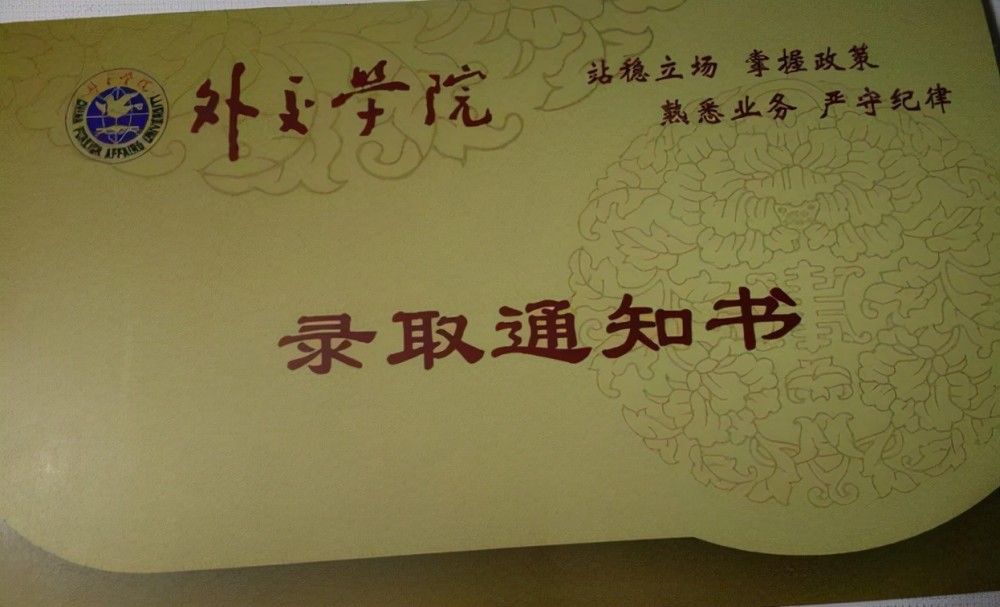 外交学院
CHINA FOREIGN AFFAIRS UNIVERSITY
外交学院
站稳立场 掌握政策
熟悉业务 严守纪律
录取通知书